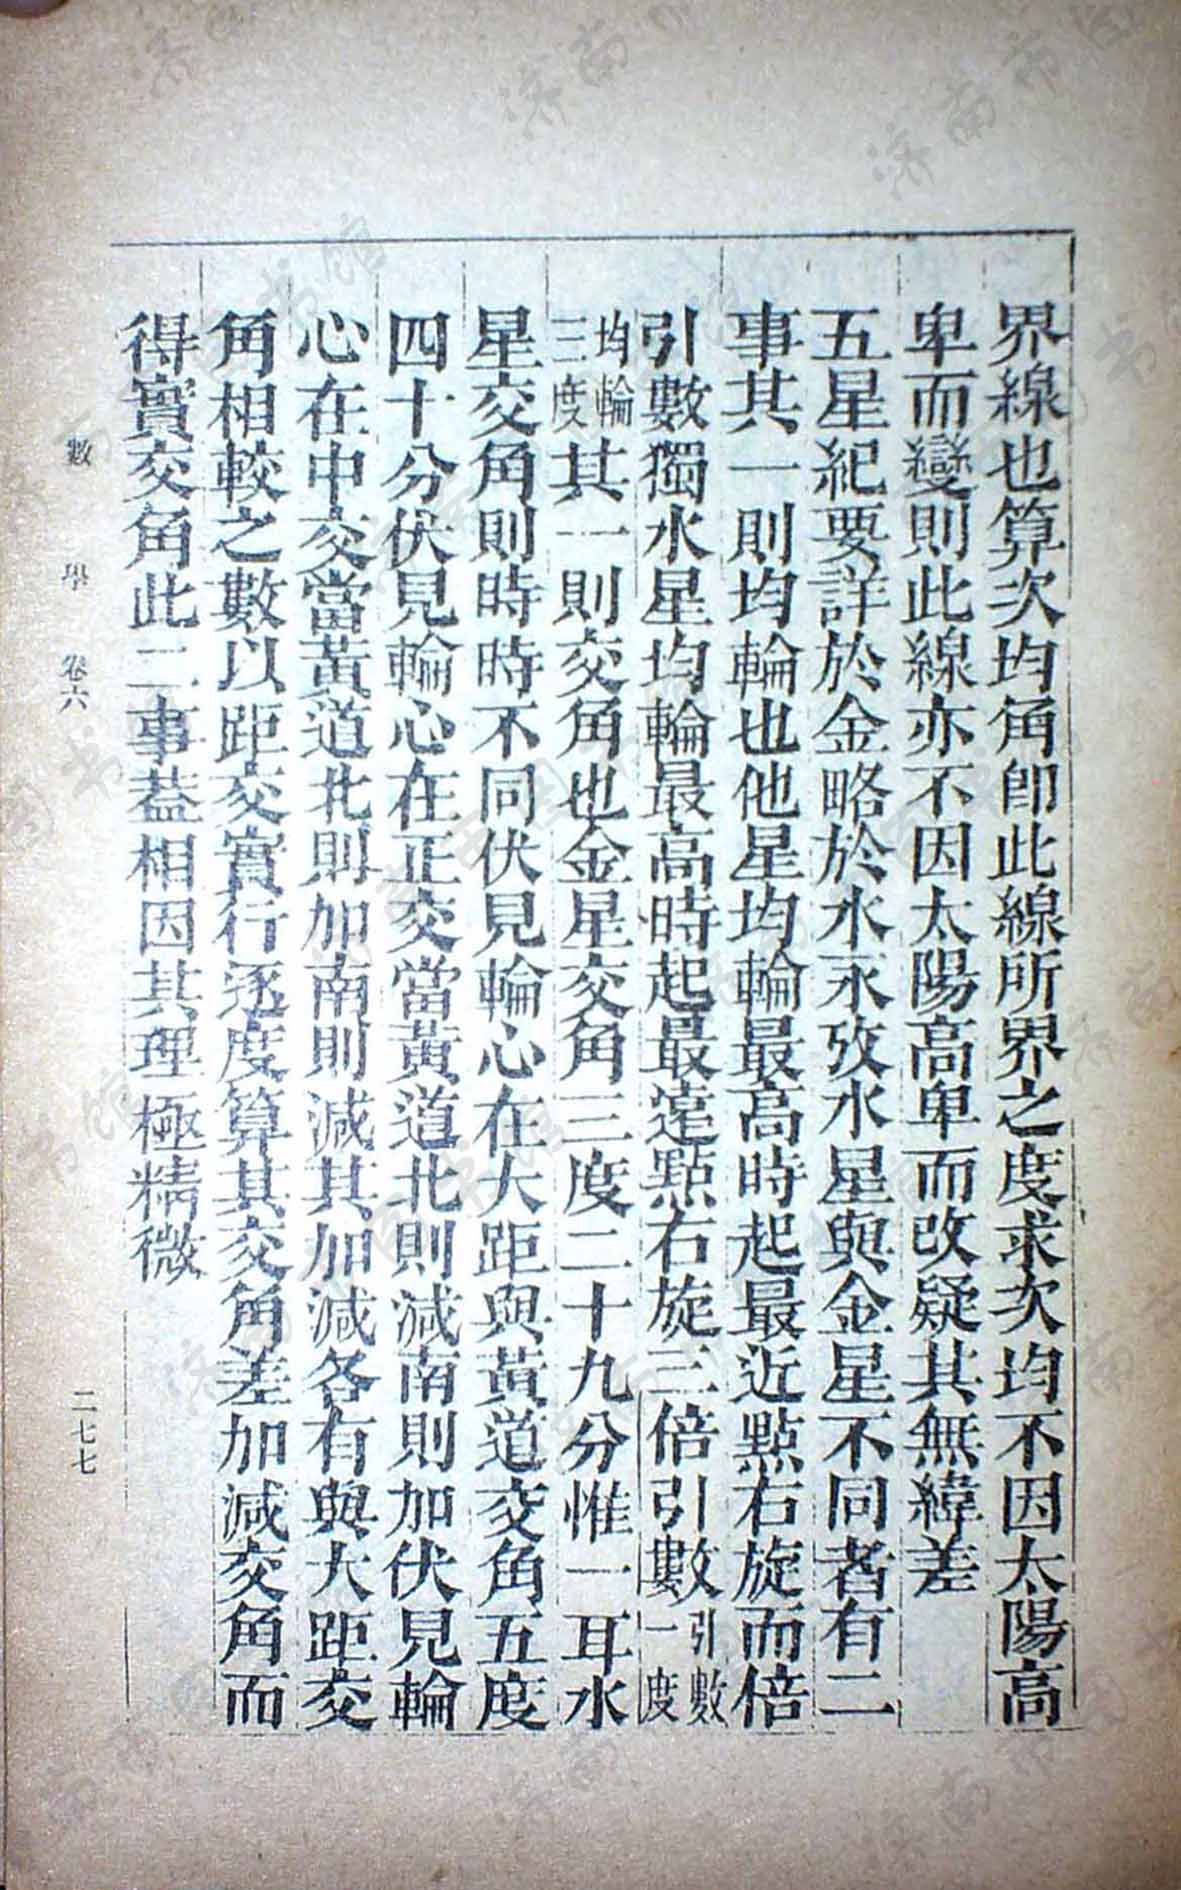 界線也算次均角卽此線所界之度求次均不因太陽高
卑而變則此線亦不因太陽高卑而改疑其無緯差
五星紀要詳於金略於水永攷水星與金星不同者有二
事其一則均輪也他星均輪最高時起最近點右旋而倍
引數獨水星均輪最高時起最遠點右旋三倍引數引數一度
均輪三度其一則交角也金星交角三度二十九分惟一耳水
星交角則時時不同伏見輪心在大距與黃道交角五度
四十分伏見輪心在正交當黃道北則減南則加伏見輪
心在中交當黃道北則加南則減其加減各有與大距交
角相較之數以距交實行逐度算其交角差加減交角而
得實交角此二事葢相因其理極精微
數學 卷六 二七七